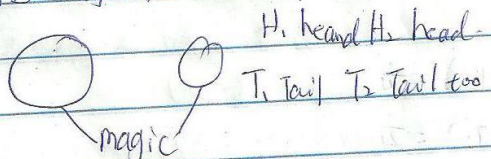 H₁ heand H₂ head.
T₁ Tail T₂ Tail too
magic